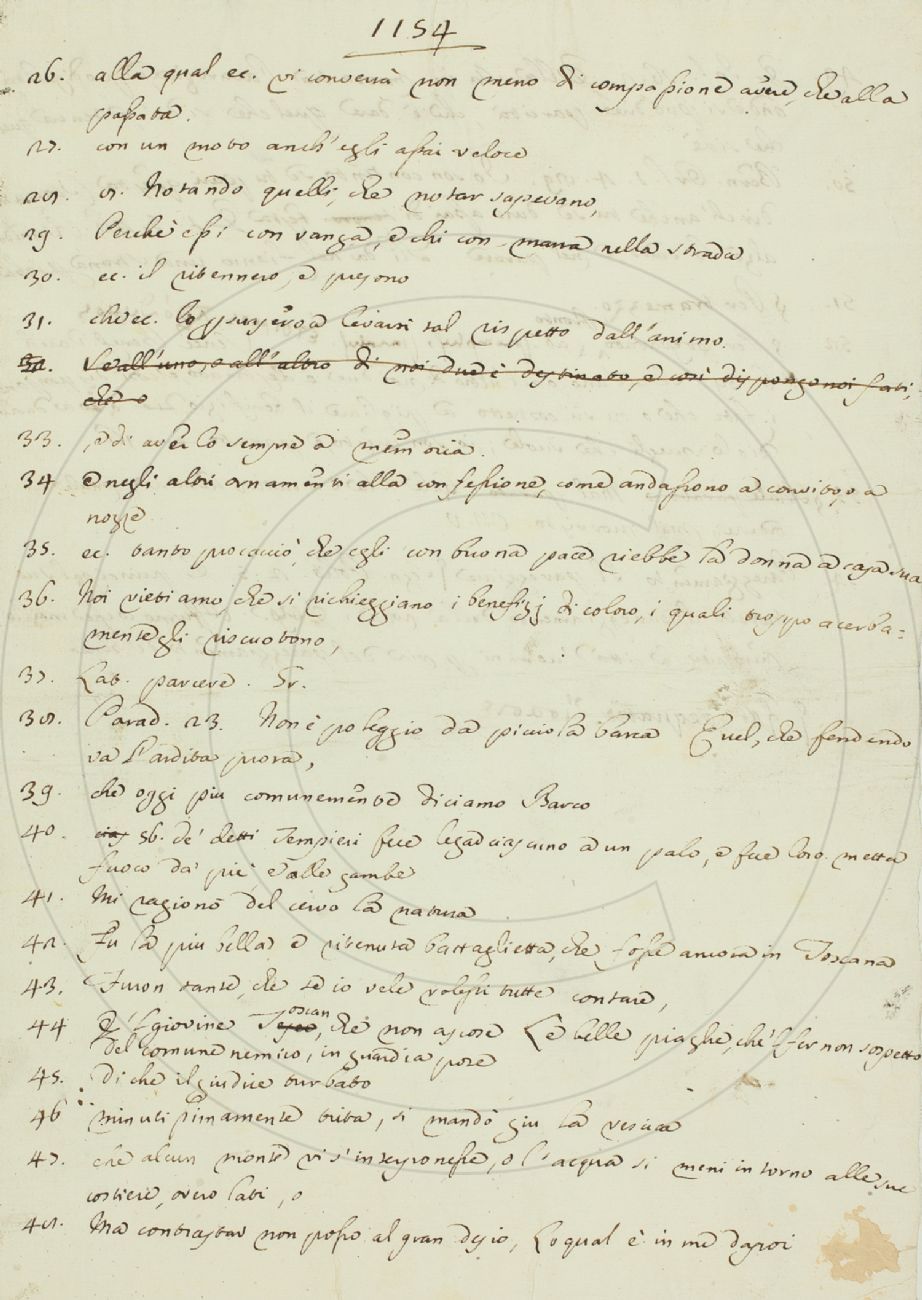 1154
26. alla qual ec. vi converrà non meno di compassione avere, che alla
passata.
27. con un moto anch'egli assai veloce
28. Notando quelli, che notar sapevano,
29. Perchè essi con vanga, e chi con marra nella strada
30. ec. il ritennero, e presono
31. che ec. lo levarsi tal rispetto dall'animo.
32. Se all'uno, o all'altro di noi due è destinato, e così dispongono i fati,
che o
33. e di averlo sempre a memoria.
34 e negli altri ornamenti alla confessione, come andassono a convito, o a
nozze
35. ec. tanto procacciò, che egli con buona pace riebbe la donna a casa sua
36. Noi vietiamo, che si richieggiano i benefizj di coloro, i quali troppo acerba=
mente gli riscuotono,
37. Lat. parcere. Gr.
38. Parad. 23. Non è poleggio da picciola barca Quel, che fendendo
va l'ardita prora,
39. che oggi più comunemente diciamo Barco
40. cias 56. de' detti Tempieri fece legar ciascuno a un palo, e fece loro mettere
fuoco da' piè, e alle gambe
41. Mi ragionò del cervo la natura
42. Fu la più bella e ritenuta battaglietta, che fosse ancora in Toscana
43. Furon tante, che se io vele volessi tutte contare,
44 E 'l giovine Toscan, che non ascose Le belle piaghe, che 'l fer non sospetto
Del comune nemico, in guardia pose
45. Di che il giudice turbato
46 minutissimamente trita, si mandò giù la vescica
47. che alcun monte vi s'interponesse, o l'acqua si meni intorno alle sue
costiere, overo lati, o
48. Ma contrastar non posso al gran desio, Lo qual è in me dapoi